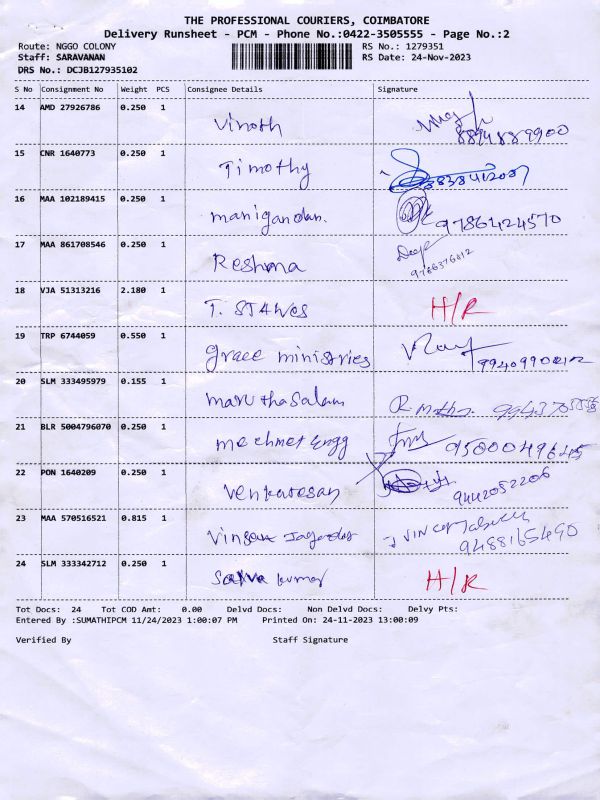 THE PROFESSIONAL COURIERS, COIMBATORE
Delivery Runsheet - PCM - Phone No.:0422-3505555 - Page No.:2
Route: NGGO COLONY RS No.: 1279351
Staff: SARAVANAN RS Date: 24-Nov-2023
DRS No.: DCJB127935102
S No Consignment No Weight PCS Consignee Details Signature
14 AMD 27926786 0.250 1 Vinoth 8894889900
15 CNR 1640773 0.250 1 Timothy
16 MAA 102189415 0.250 1 manigandan. 9786424570
17 MAA 861708546 0.250 1 Reshma 9786376812
18 VJA 51313216 2.180 1 T. H/R
19 TRP 6744059 0.550 1 grace ministries
20 SLM 333495979 0.155 1 maruthasalam
21 BLR 5004796070 0.250 1 mechmet Engg 9500049645
22 PON 1640209 0.250 1 Venkatesan 9442052206
23 MAA 570516521 0.815 1 9488165490
24 SLM 333342712 0.250 1 kumar H/R
Tot Docs: 24 Tot COD Amt: 0.00 Delvd Docs: Non Delvd Docs: Delvy Pts:
Entered By :SUMATHIPCM 11/24/2023 1:00:07 PM Printed On: 24-11-2023 13:00:09
Verified By Staff Signature